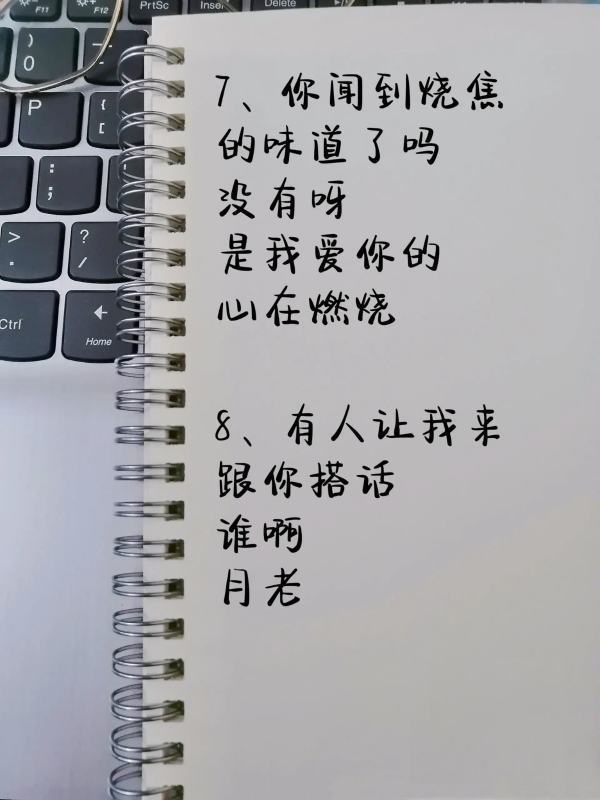 F11
F12
PrtSc
Insert
Delete
)
0
P
{
[
:
;
>
.
?
/
Ctrl
Home
7、你闻到烧焦
的味道了吗
没有呀
是我爱你的
心在燃烧
8、有人让我来
跟你搭话
谁啊
月老